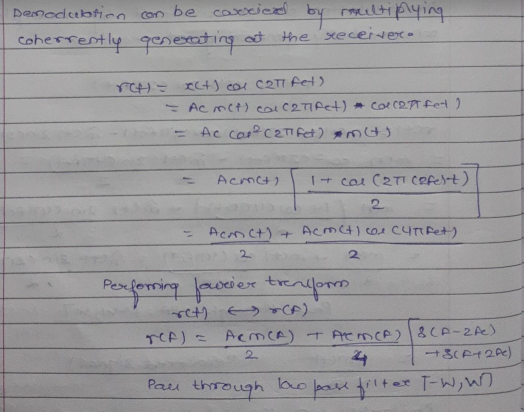 Demodulation can be carried by multiplying
coherrently generating at the receiver.
r(t) = x(t) cos (2πfct)
= Ac m(t) cos(2πfct) * cos(2πfct)
= Ac cos²(2πfct) * m(t)
= Acm(t) [1 + cos(2π(2fc)t) / 2]
= Acm(t)/2 + Acm(t) cos(4πfct)/2
Performing fourier transform
r(t) ↔ r(f)
r(f) = Acm(f)/2 + Acm(f)/4 [δ(f-2fc) +δ(f+2fc)
Pass through low pass filter [-W, W]